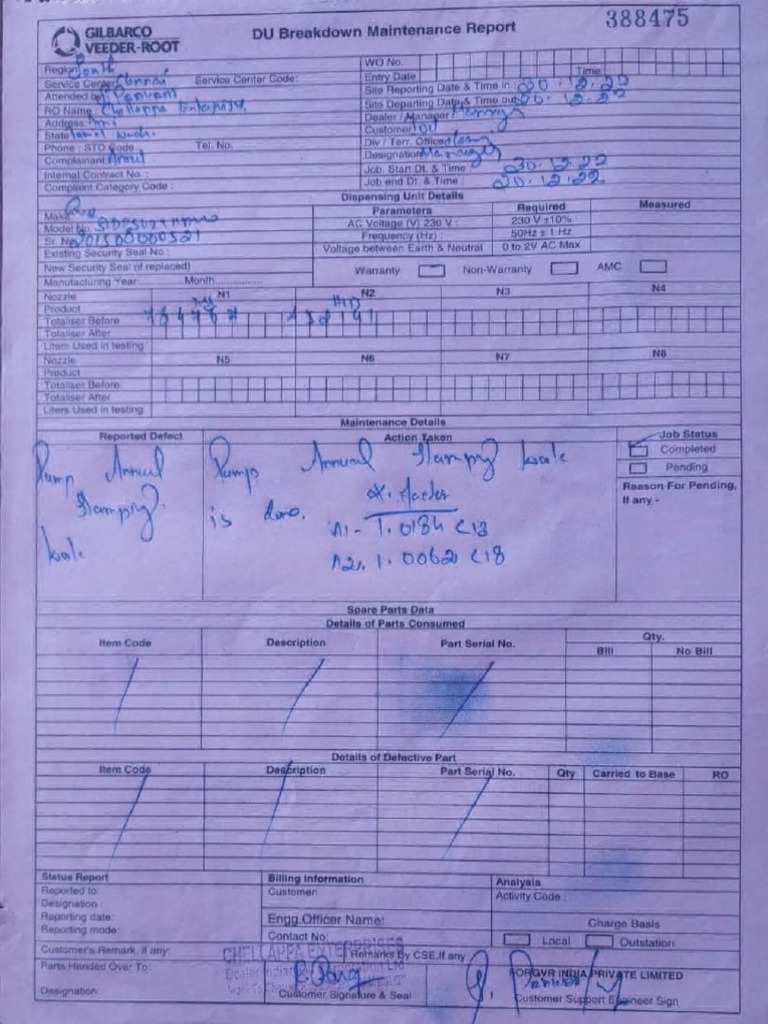 GILBARCO
VEEDER-ROOT
DU Breakdown Maintenance Report
388475
Region: South
Service Center: Chennai Service Center Code:
Attended by:
RO Name: Chellappa Enterprises
Address:
State: Tamil Nadu
Phone : STD Code Tel. No.
Complainant:
Internal Contract No. :
Complaint Category Code :
WO No.
Entry Date Time
Site Reporting Date & Time in : 30.12.22
Site Departing Date & Time out: 30.12.22
Dealer / Manager: Manager
Customer:
Div / Terr. Officer:
Designation: Manager
Job. Start Dt. & Time : 30.12.22
Job end Dt. & Time : 30.12.22
Dispensing Unit Details
Make
Model No.
Sr. No.
Existing Security Seal No :
New Security Seal (if replaced)
Manufacturing Year Month
Parameters Required Measured
AC Voltage (V) 230 V : 230 V ±10%
Frequency (Hz) : 50Hz ± 1 Hz
Voltage between Earth & Neutral 0 to 2V AC Max
Warranty Non-Warranty AMC
Nozzle N1 N2 N3 N4
Product MS HSD
Totaliser Before
Totaliser After
Liters Used in testing
Nozzle N5 N6 N7 N8
Product
Totaliser Before
Totaliser After
Liters Used in testing
Maintenance Details
Reported Defect Action Taken Job Status
Pump Annual
Stamping
Pump Annual Stamping
is done.
K. Factor
N1 - 1.0184
N2. 1.0062
Completed
Pending
Reason For Pending,
If any -
Spare Parts Data
Details of Parts Consumed
Item Code Description Part Serial No. Qty.
Bill No Bill
Details of Defective Part
Item Code Description Part Serial No. Qty Carried to Base RO
Status Report Billing Information Analysis
Reported to: Customer: Activity Code :
Designation :
Reporting date: Engg.Officer Name: Charge Basis
Reporting mode: Contact No: Local Outstation
Customer's Remark, if any: CHELLAPPA ENTERPRISES Remarks By CSE,if any
Parts Handed Over To: FOR GVR INDIA PRIVATE LIMITED
Designation: Customer Signature & Seal Customer Support Engineer Sign